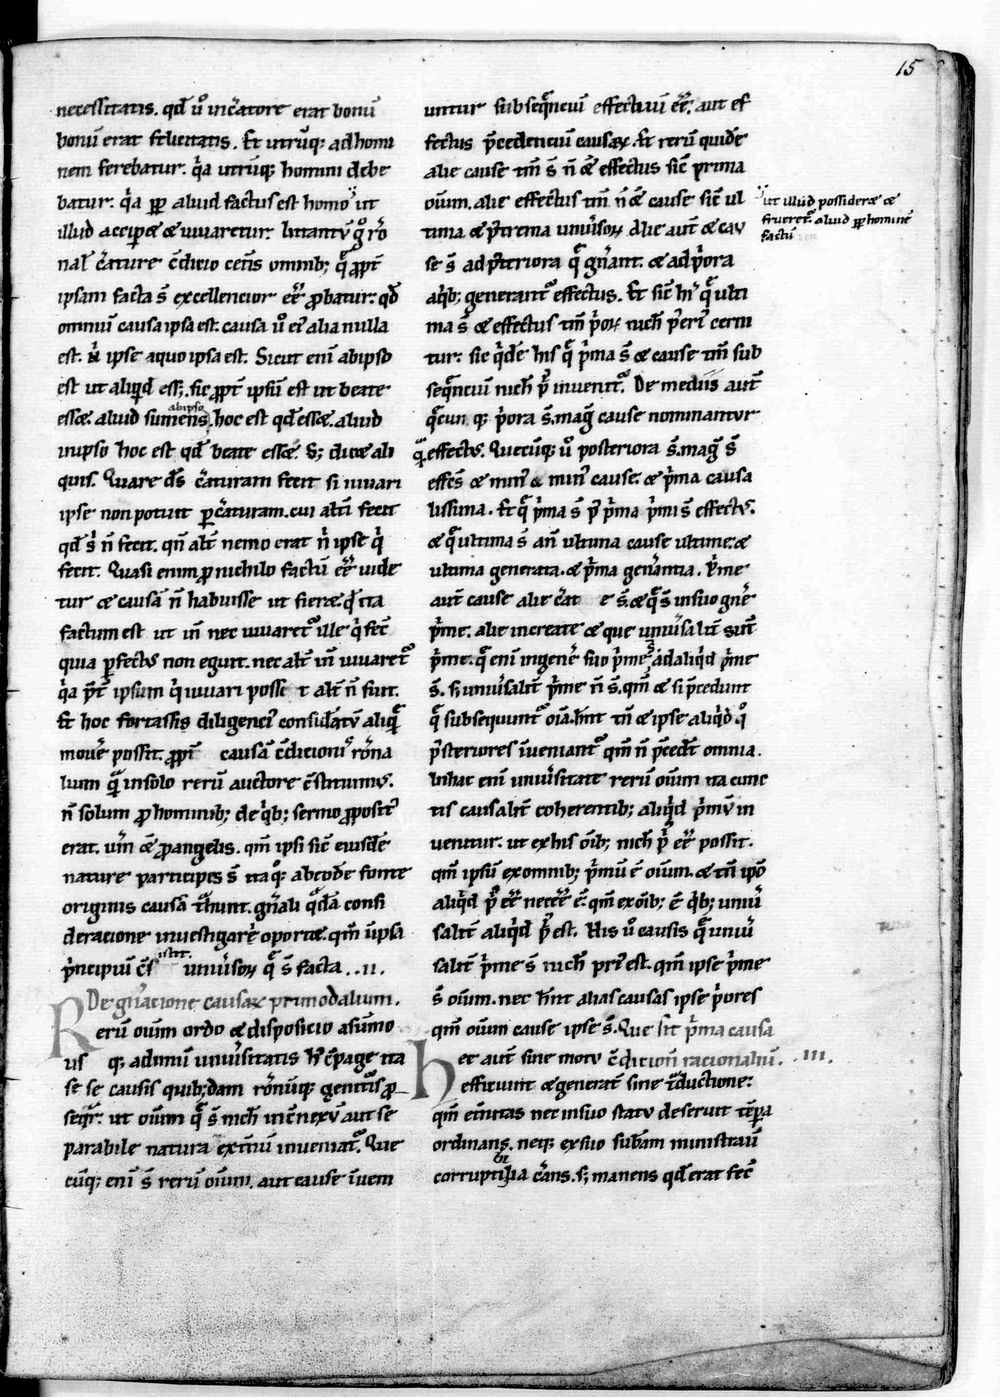 15
necessitatis. qd̄ u̾ in c̃atore erat bonū
bonū erat felicitatis. Et utrūq; ad homi
nem ferebatur. q̾a utrūq; homini debe
batur. q̾a ꝓp̄ aliud factus est homo ut
illud accip̃et & iuuaretur. q̾ r̃o
nal̾ c̃ature c̄dicio cen̄s omnib; q̄ ꝓpt̃
ipsam facta s̄ excellencior eē̄ ꝓbatur. qd̄
omniū causa ipsa est. causa u̾ ei̾ alia nulla
est. n̾ ipse a quo ipsa est. Sicut enī ab ipso
est ut aliqd̾ esse̾. sic ꝓpt̃ ipsū est ut beate
esset. aliud sumens, hoc est qd̄ esset. aliud
ab ipso
in ipso hoc est qd̄ beate esset. S; dicet ali
quis. Quare d̄s c̃aturam fecit si iuuari
ipse non potuit per c̃aturam. cui alt̾i fecit
qd̄ s̾ n̄ fecit. qn̄ alt̾ nemo erat n̾ ipse q̾
fecit. Quasi enim ꝓ nichilo factū eē̄ uide
tur & causā n̄ habuisse ut fieret qd̾ ita
factum est ut in̄ nec iuuaret᷑ ille q̾ fec̄
quia ꝑfectus non eguit. nec alt̾ in̄ iuuaret᷑
q̾a p̄t̾ ipsum q̾ iuuari posset alt̾ n̄ fuit.
Et hoc fortassis diligenci̾ consid̾atū aliq̄
mou̾e possit. ꝓpt̃ causā c̄dicionis r̄ona
lium q̄ in solo rerū auctore c̄stituimus.
n̄ solum ꝓ hominib; de q̾b; sermo ꝓposit̾
erat. uer̄ & ꝓ angelis. qm̄ ipsi sic̄ eiusdē
nature participes s̄ ita q̾ ab eodē fonte
originis causā t̾hunt. gn̄ali q̾dā consi
deracione inuestigare oportet. qm̄ in ipsa
p̾ncipiū c̄s ist̄it. uniu̾sor̄ q̄ s̄ facta. .ii.
De gn̄atione causar̄ primodalium.
Rerū oium̄ ordo & disposicio a sūmo
us q; ad imū uniu̾sitatis h̾ c̄page ita
se se causis quib;dam rōnib;q; genitis ꝓ
seq̾r̄. ut oium̄ q̄ s̄ nich̾ incōnexū aut se
parabile natura ext̾nū inueniat᷑. Que
cūq; enī s̄ rerū oium̄. aut cause īuen
untur subseq̄nciū effectuū eē̄. aut ef
fectus p̄cedenciū causar̄. Et rerū quidē
alie cause tm̄ s̄ n̄ & effectus sic̄ prima
oium̄. alie effectus tm̄ n̄ & cause sic̄ ul
tima & postrema uniu̾sor̄. Alie aut̄ & cau
se s̄ ad posteriora q̄ gn̄ant. & ad p̾ora
a q̾b; generant᷑ effectus. Et sic̄ hi̾ q̄ ulti
ma s̄ & effectus tm̄ p̾or̄ nich̾ post̾i̾ cerni
tur: sic q̾dē his q̄ p̾ma s̄ & cause tm̄ sub
seq̄nciū nich̾ p̾ inuenit᷑. De mediis aut̄
q̄cun q; p̾ora s̄. mag̾ cause nominantur
q̄ effectus. Quecūq; u̾ posteriora s̄. mag̾ s̄
effcs̄ & min̾ & min̾ cause. & p̾ma causa
lissima. Et q̄ p̾ma s̄ p̾ p̾ma p̾mi s̄ effectus.
& q̄ ultima s̄ an̄ ultima cause ultime. &
ultima generata. & p̾ma gen̾antia. P̾me
aut̄ cause alie c̾at e s̄. & q̄ s̄ in suo gn̾e
p̾me. alie increate & que uniu̾salit̾ sunt̄
p̾me. q̄ enī in gen̾e suo p̾me s̄ ad aliq̾d p̾me
s̄. s; uniu̾salit̾ p̾me n̄ s̄. qm̄ & si p̾cedunt
q̄ subsequunt᷑ oīa. hn̄t tn̄ & ipse aliqd̾ q̾
posteriores īueniant᷑ qm̄ n̄ p̄cedt̄ omnia.
In hac enī uniu̾sitate rerū oium̄ ita cunc
tis causalit̾ coherentib; aliq̾d p̾mū in
uenitur. ut ex his oīb; nich̾ p̾ eē̄ possit.
qm̄ ipsū ex omnib; p̾mū ē̄ oium̄. & tn̄ ipō
aliq̾d p̾ eē̄ necesse ē̄. qm̄ ex oīb; ē̄ q̾b; uniu̾
salit̾ aliq̾d p̾ est. His u̾ causis q̄ uniu̾
salit̾ p̾me s̄ nich̾ pri̾ est. qm̄ ipse p̾me
s̄ oium̄. nec hn̄t alias causas ipse p̾ores
qm̄ oium̄ cause ipse s̄. Que sit p̾ma causa
c̄dicion̄ racionaliū. .iii.
Hec aut̄ sine motu
efficiunt & generant̄ sine t̾ductione:
qm̄ et̾nitas nec in suo statu deseruit tēp̄a
ordinans. neq; ex suo subam̄ ministrauit̄
corruptibilia c̾ans. s; manens qd̄ erat fec̄
ut illud possideret &
frueret᷑. aliud ꝓp̄ hominē
factū